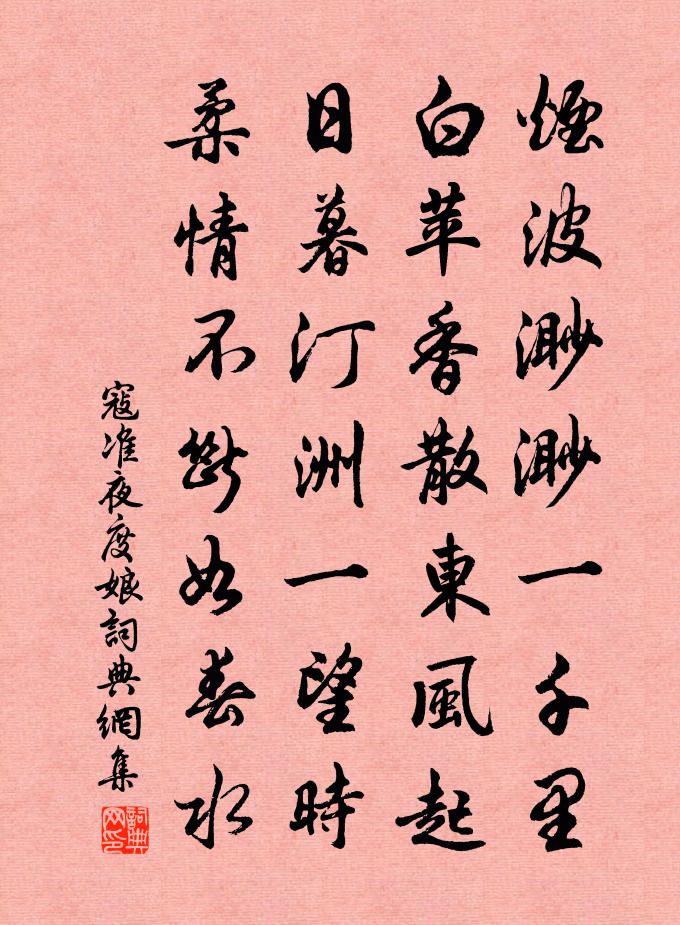 煙波渺渺一千里
白苹香散東風起
日暮汀洲一望時
柔情不斷如春水
寇准夜度娘詞典網集
詞典网印